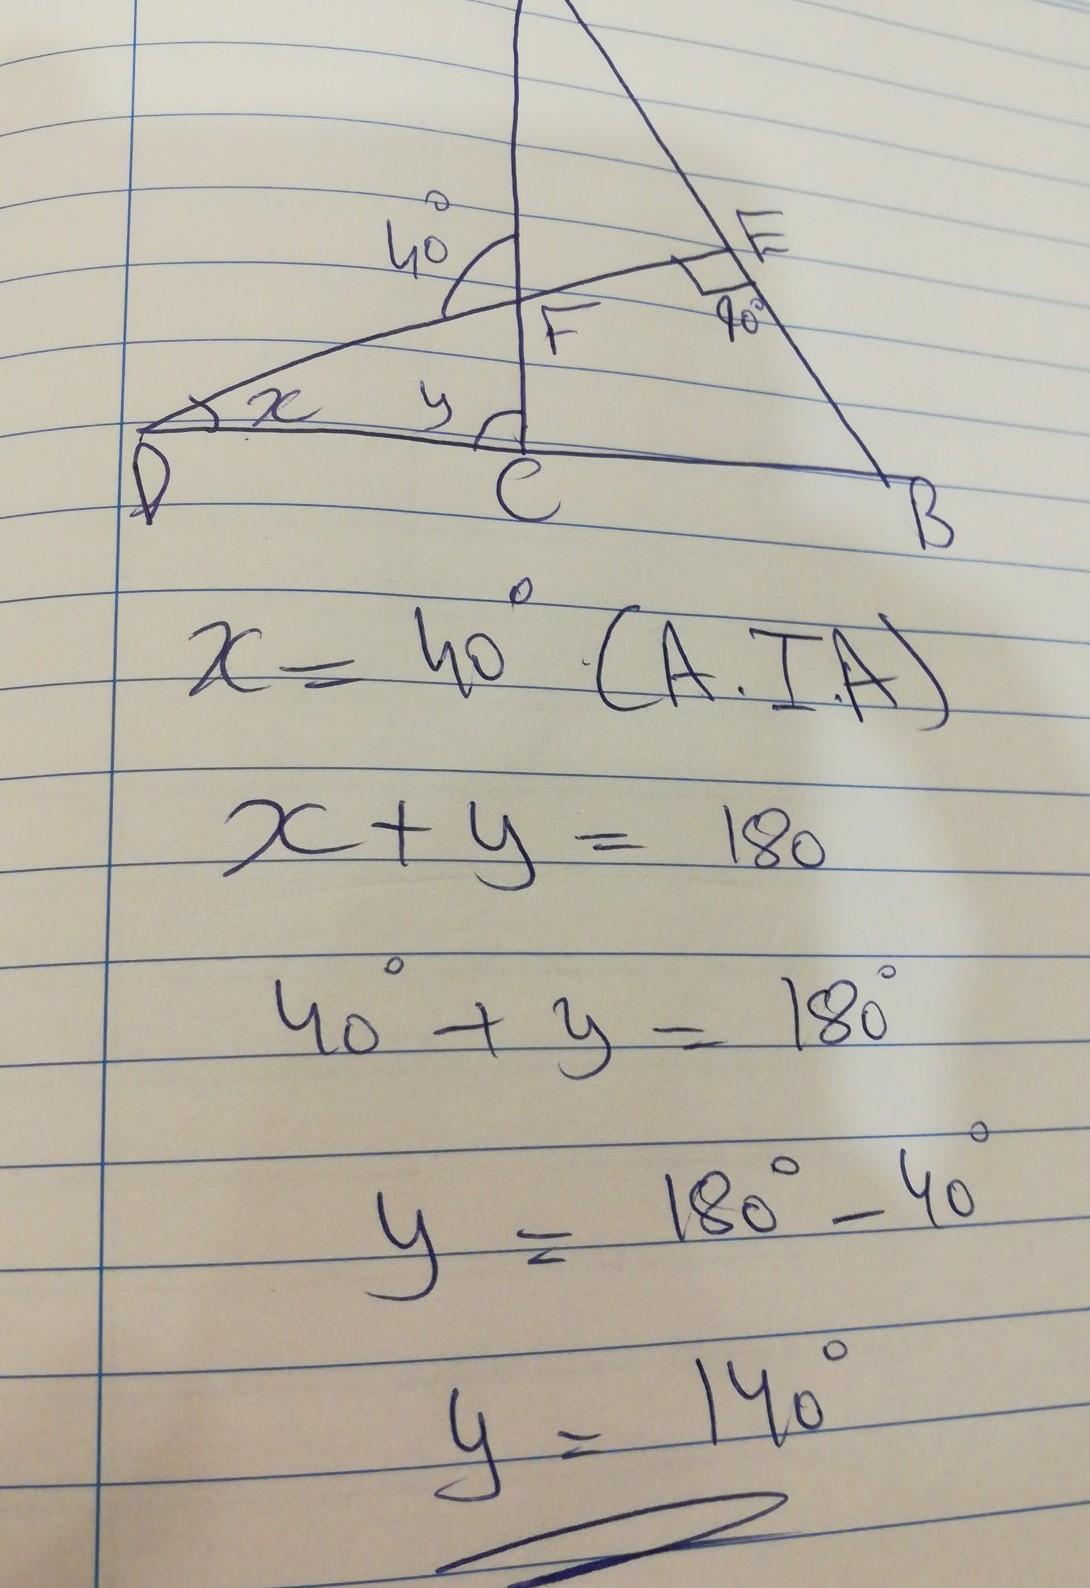 40°
E
90°
F
x
y
D
C
B
x = 40° (A.I.A)
x + y = 180
40° + y = 180°
y = 180° - 40°
y = 140°